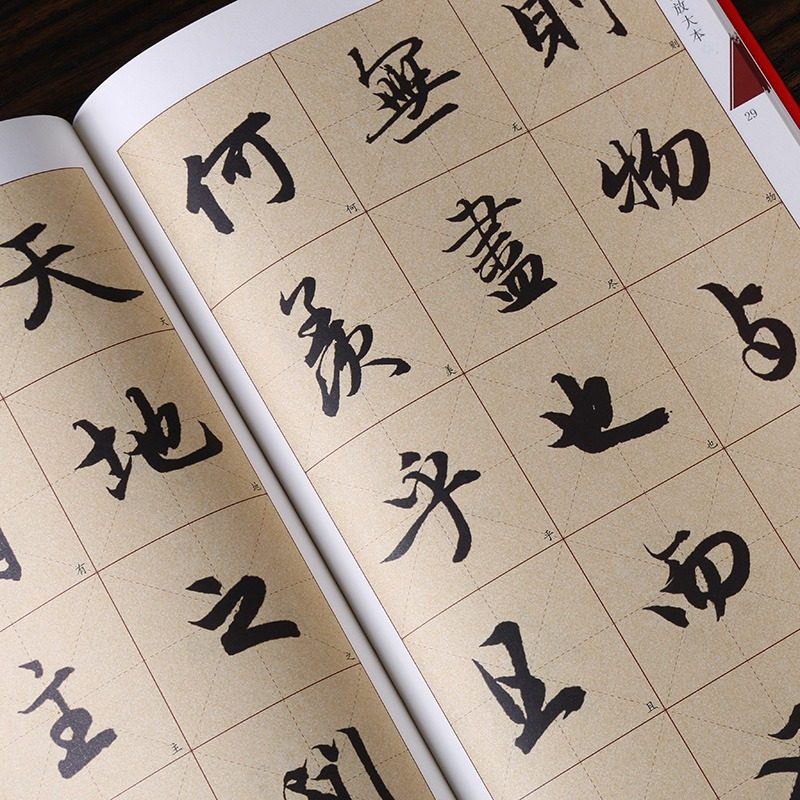 放大本
29
則物与
则物
無盡也而
无尽也
何羡乎且
何美乎且
天地之
天地之
主
有主